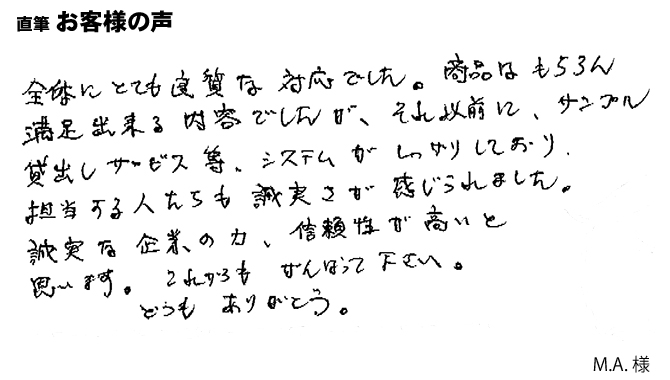 直筆 お客様の声
全体にとても良質な対応でした。商品はもちろん
満足出来る内容でしたが、それ以前に、サンプル
貸出しサービス等、システムがしっかりしており、
担当する人たちも誠実さが感じられました。
誠実な企業の力、信頼性が高いと
思います。これからもがんばって下さい。
どうもありがとう。
M.A. 様